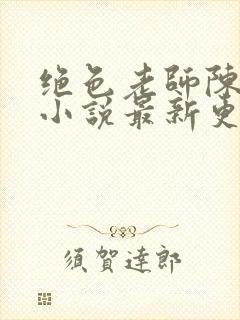 绝色老師陳
小說最新更
須賀達郎